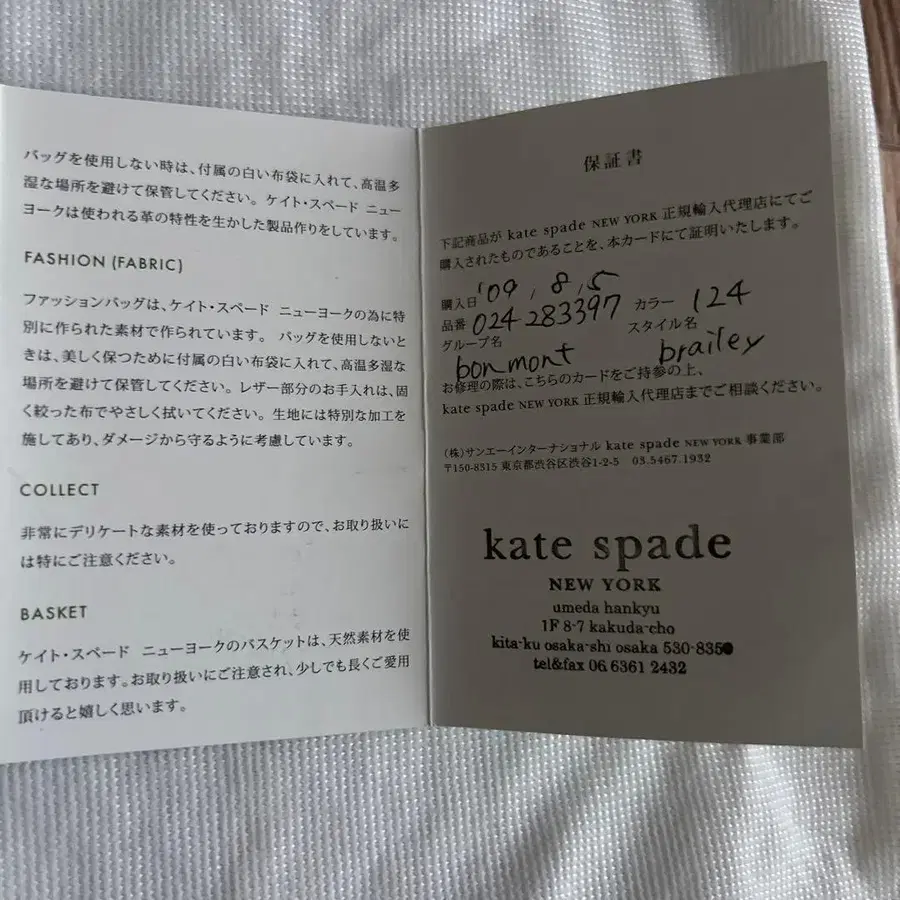 バッグを使用しない時は、付属の白い布袋に入れて、高温多
湿な場所を避けて保管してください。ケイト・スペード ニュー
ヨークは使われる革の特性を生かした製品作りをしています。
FASHION (FABRIC)
ファッションバッグは、ケイト・スペード ニューヨークの為に特
別に作られた素材で作られています。 バッグを使用しないと
きは、美しく保つために付属の白い布袋に入れて、高温多湿な
場所を避けて保管してください。レザー部分のお手入れは、固
く絞った布でやさしく拭いてください。生地には特別な加工を
施してあり、ダメージから守るように考慮しています。
COLLECT
非常にデリケートな素材を使っておりますので、お取り扱いに
は特にご注意ください。
BASKET
ケイト・スペード ニューヨークのバスケットは、天然素材を使
用しております。お取り扱いにご注意され、少しでも長くご愛用
頂けると嬉しく思います。
保証書
下記商品が kate spade NEW YORK 正規輸入代理店にてご
購入されたものであることを、本カードにて証明いたします。
購入日 '09, 8, 5
品番 024283397 カラー 124
グループ名 スタイル名
bonmont brailey
お修理の際は、こちらのカードをご持参の上、
kate spade NEW YORK 正規輸入代理店までご相談ください。
(株)サンエーインターナショナル kate spade NEW YORK 事業部
〒150-8315 東京都渋谷区渋谷1-2-5 03.5467.1932
kate spade
NEW YORK
umeda hankyu
1F 8-7 kakuda-cho
kita-ku osaka-shi osaka 530-8350
tel&fax 06 6361 2432